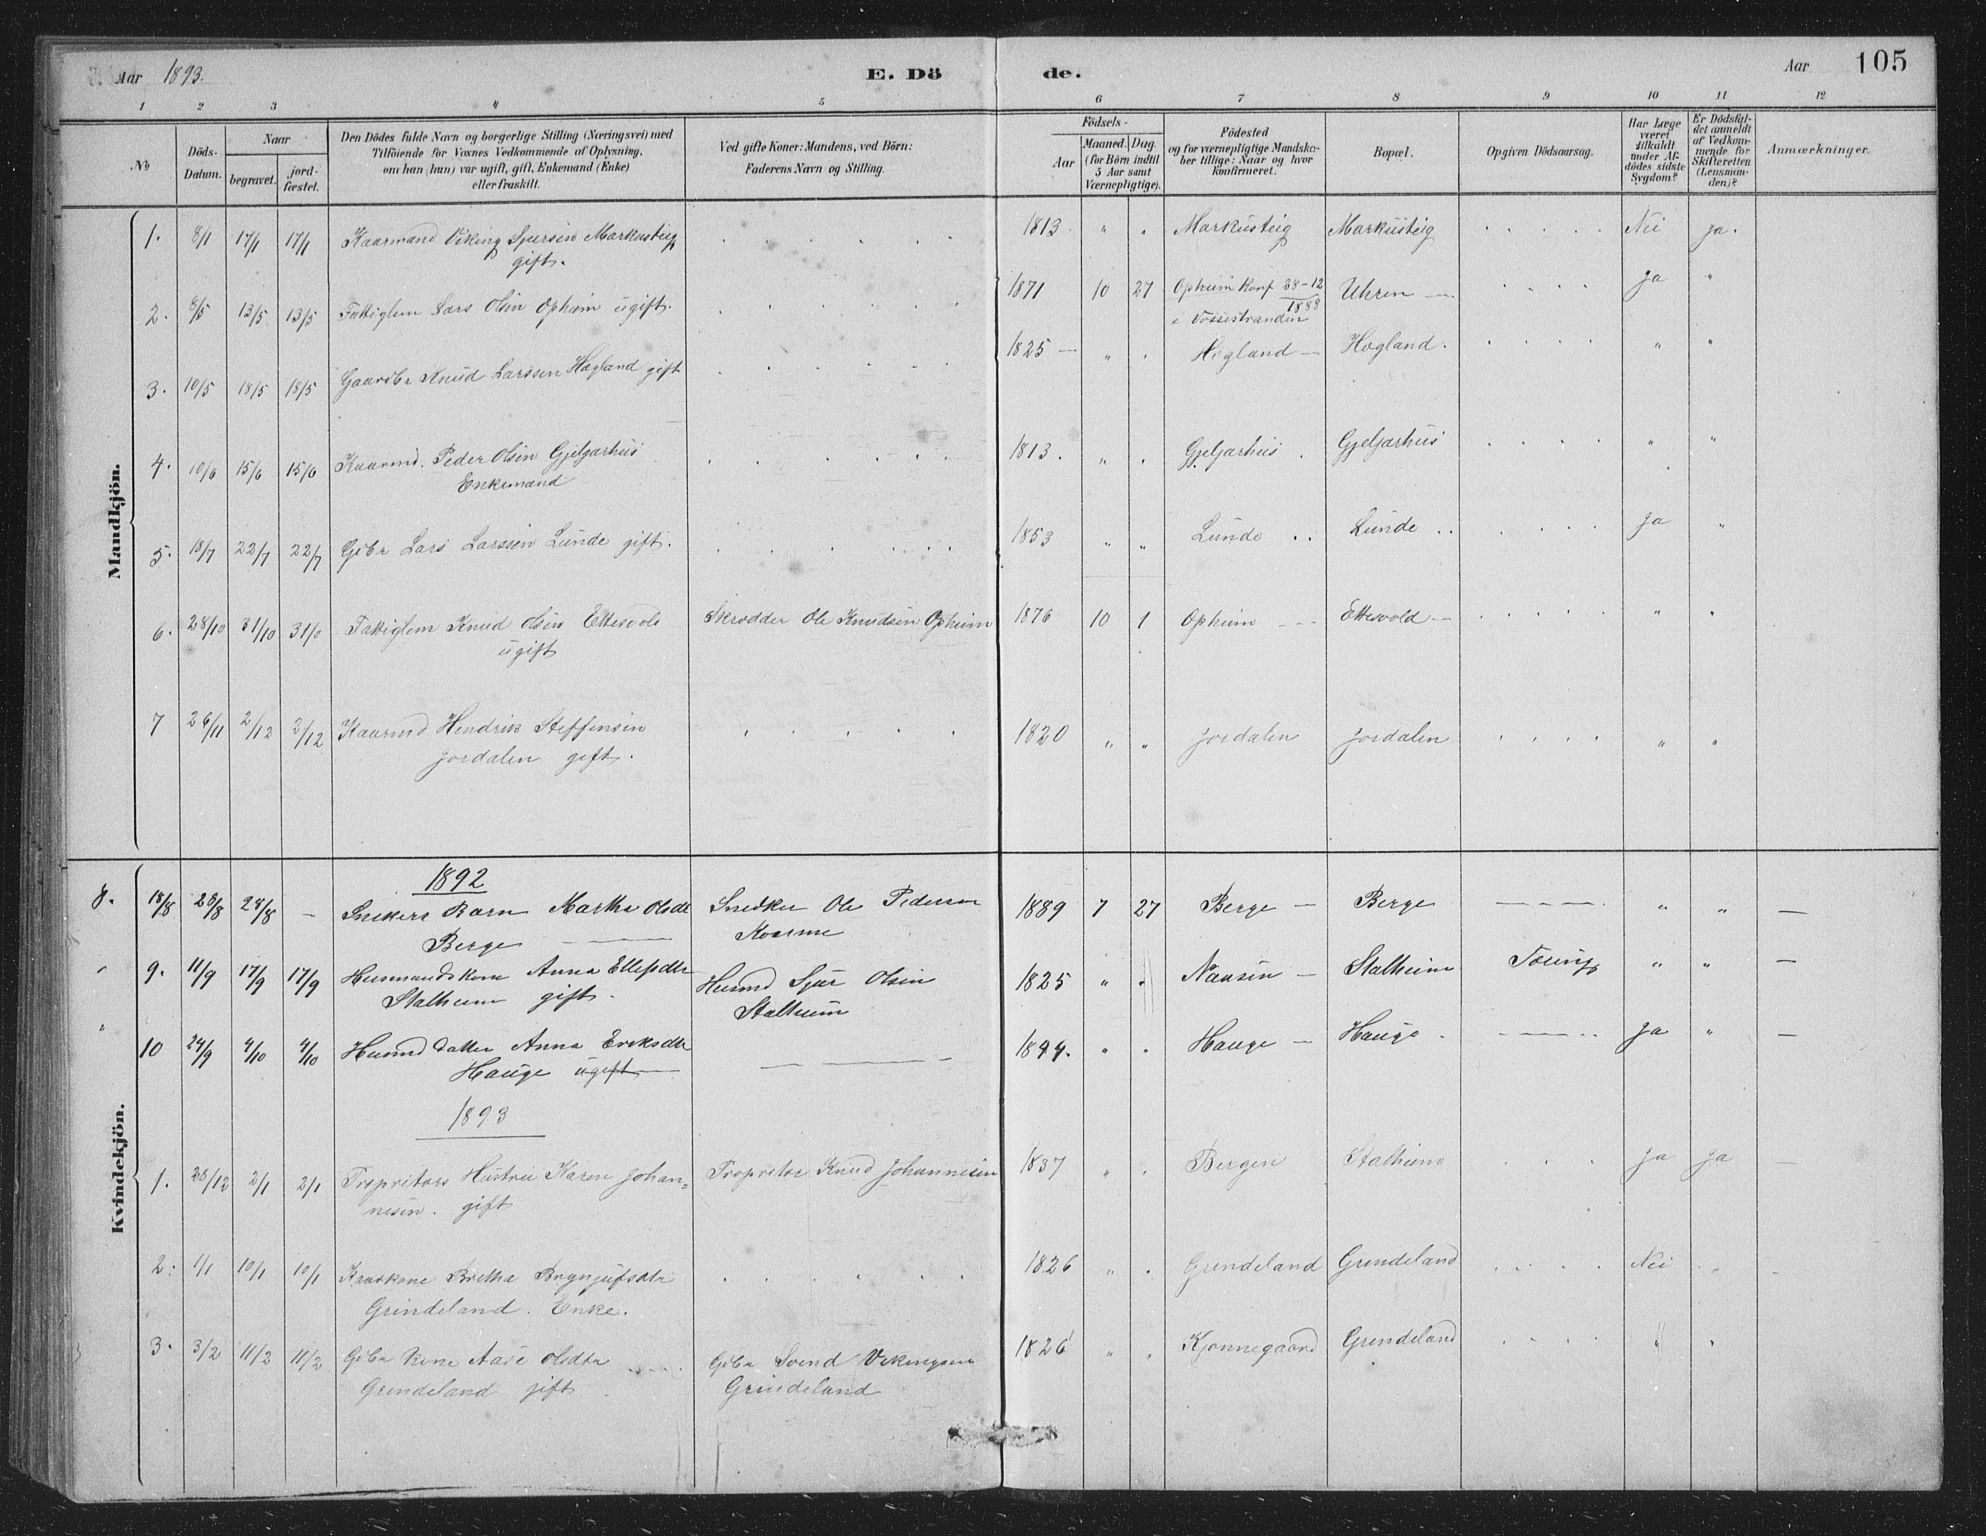 Aar 1893. E. Dö de. Aar 105
1 2 3 4 5 6 7 8 9 10 11 12
No
Döds-Datum.
Naar
begravet.
jordfæstet.
Den Dödes fulde Navn og borgerlige Stilling (Næringsvei) med
Tilföiende for Voxnes Vedkommende af Oplysning,
om han (hun) var ugift, gift, Enkemand (Enke)
eller fraskilt.
Ved gifte Koner: Mandens, ved Börn:
Faderens Navn og Stilling.
Födsels-
Aar
Maaned. Dag.
(for Börn indtil
5 Aar samt
Værnepligtige).
Födested
og for værnepligtige Mandskaber tillige: Naar og hvor
konfirmeret.
Bopæl.
Opgiven Dödsaarsag.
Har Læge
været
tilkaldt
under Afdödes sidste
Sygdom?
Er Dödsfaldet anmeldt
af Vedkommende for
Skifteretten
(Lensmanden)?
Anmærkninger.
Mandkjön.
1. 8/1 17/1 17/1 Kaarmand Viking Sjursen Markusteig 1813 " " Markusteig Markusteig Nei ja.
gift.
2. 8/5 13/5 13/5 Fattiglem Lars Olsen Opheim ugift. 1871 10 27 Opheim Konf 28-12 Uhren Ja "
1888
i Vossestranden
3. 10/5 18/5 18/5 Gaardbr Knud Larssen Høgland gift 1825 " " Høgland Høgland. " "
4. 10/6 15/6 15/6 Kaarmd. Peder Olsen Gjelgarhus 1813. " " Gjelgarhus Gjelgarhus " "
Enkemand
5. 18/7 22/7 22/7 Gdbr Lars Larssen Lunde gift. 1853 " " Lunde Lunde Ja "
6. 28/10 31/10 31/0 Fattiglem Knud Olsen Ettesvold Skrædder Ole Knudsen Opheim 1876 10 1 Opheim Ettesvold " "
ugift
7 26/11 2/12 2/12 Kaarmd Hendrik Steffensen 1820 " " Jordalen Jordalen " "
Jordalen gift.
Kvindekjön.
1892
8. 18/8 28/8 28/8 - Snekers Barn Martha Olsdtr Snedker Ole Pedersen 1889 7 27 Berge Berge " "
Berge Kvarme
9. 11/9 17/9 17/9 Husmandskone Anna Ellefsdtr Husmd Sjur Olsen 1825 " " Naasen Stalheim Tæring " "
Stalheim gift. Stalheim
10 24/9 4/10 4/10 Husmd datter Anna Eriksdtr " " Hauge Hauge Ja "
Hauge ugift
1893
1. 28/12 2/1 2/1 Propritærs Hustru Karen Johan= Propritær Knud Johannesen 1837 " " Bergen Stalheim Ja Ja
nesen. gift
2. 1/1 10/1 10/1 Kaarkone Brita Brynjulfsdtr 1826 " " Grindeland Grindeland Nei "
Grindeland. Enke.
3. 3/2 11/2 11/2 Gdbr Kone Aase Olsdtr Gdbr Svend Vikingsen 1826 " " Kjønnegaard Grindeland " "
Grindeland gift Grindeland